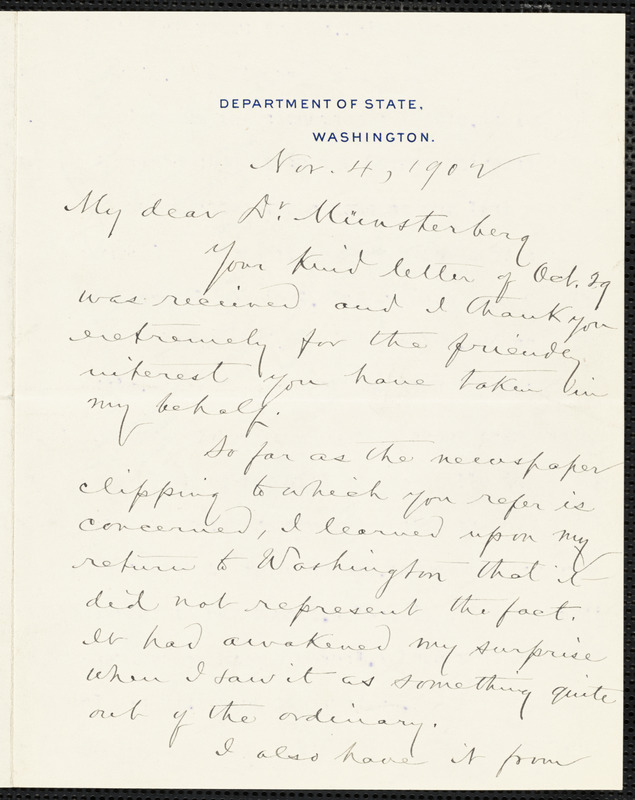 DEPARTMENT OF STATE,
WASHINGTON.
Nov. 4, 1902
My dear Dr. Münsterberg
Your kind letter of Oct. 29
was received and I thank you
extremely for the friendly
interest you have taken in
my behalf.
So far as the newspaper
clipping to which you refer is
concerned, I learned upon my
return to Washington that it
did not represent the fact.
It had awakened my surprise
when I saw it as something quite
out of the ordinary.
I also have it from